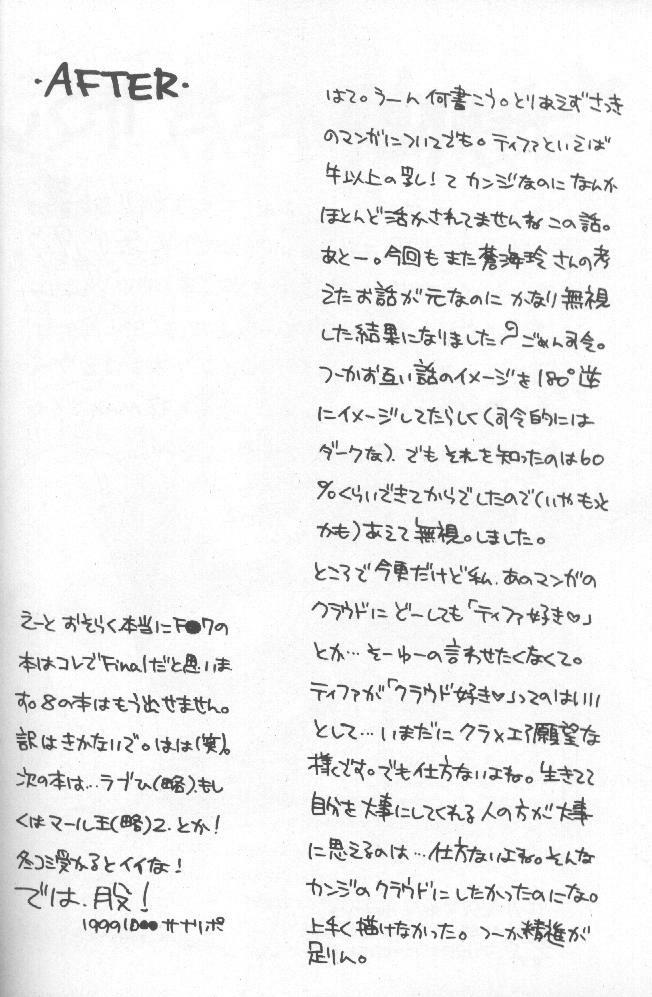 ・AFTER・
はて。うーん 何書こう。とりあえずさっき
のマンガについてでも。ティファといえば
牛以上の乳し！て カンジなのに なんか
ほとんど活かされてませんねこの話。
あとー。今回もまた蒼海玲さんの考
えたお話が元なのに かなり無視
した結果になりました ごめん司令。
つーかお互い話のイメージを180°逆
にイメージしてたらしく（司令的には
ダークな）。でもそれを知ったのは60
％くらいできてからでしたので（いやもっと
かも）あえて無視。しました。
ところで今更だけど私、あのマンガの
クラウドに どーしても「ティファ好き♡」
とか…そーゆーの言わせたくなくて。
ティファが「クラウド好き♡」ってのはいい
として…いまだにクラ×エア願望な
様です。でも仕方ないよね。生きてて
自分を大事にしてくれる人の方が大事
に思えるのは…仕方ないよね。そんな
カンジのクラウドにしたかったのにな。
上手く描けなかった。つーか精進が
足りん。
えーと おそらく本当にF●7の
本はコレでFinalだと思いま
す。8の本はもう出せません。
訳はきかないで。はは（笑）。
次の本は…ラブひ（略）、もし
くはマール王（略）2、とか！
冬コミ受かるとイイな！
では、
1999 10●●サナリポ